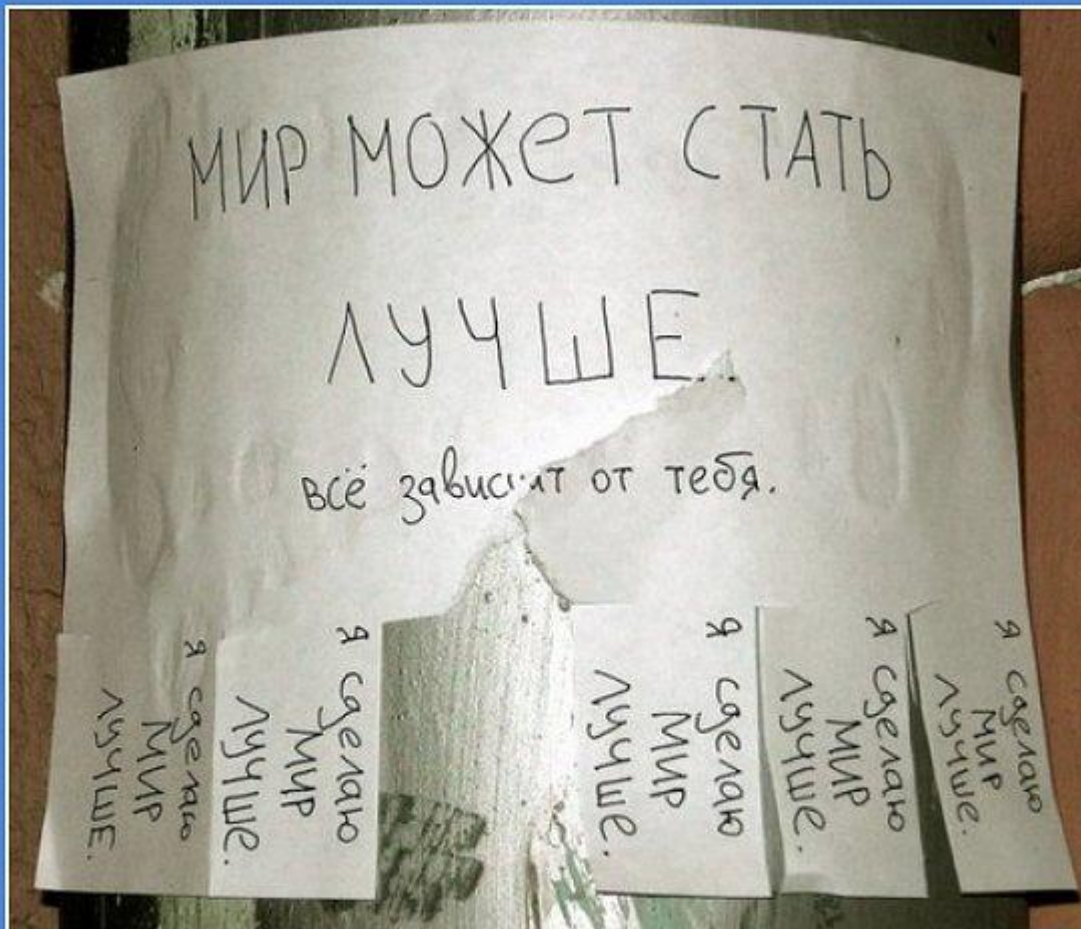 МИР МОЖЕТ СТАТЬ
ЛУЧШЕ...
всё зависит от тебя.
я сделаю
МИР
ЛУЧШЕ.
я сделаю
МИР
ЛУЧШЕ.
я сделаю
МИР
ЛУЧШЕ.
я сделаю
МИР
ЛУЧШЕ.
я сделаю
МИР
ЛУЧШЕ.